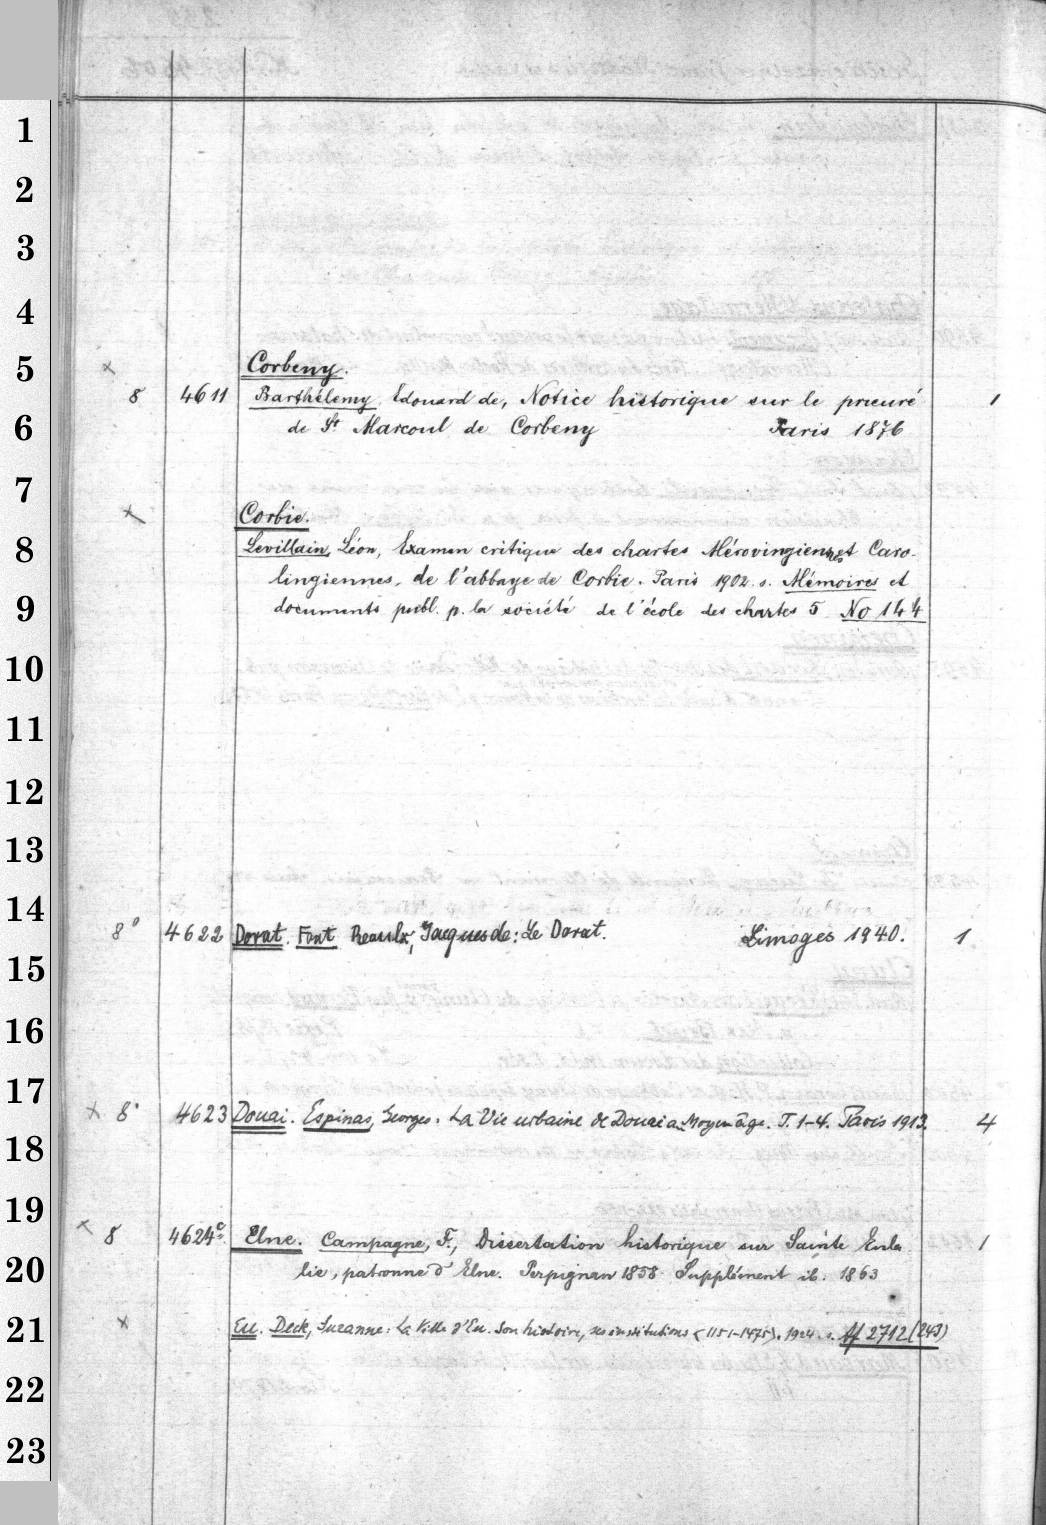 1
2
3
4
5 × Corbeny.
8 4611 Barthélemy, Edouard de, Notice historique sur le prieuré 1
6 de St Marcoul de Corbeny Paris 1876
7 × Corbie.
8 Levillain, Léon, Examen critique des chartes Mérovingiennes et Caro-
lingiennes, de l'abbaye de Corbie. Paris 1902. s. Mémoires et
9 documents publ. p. la société de l'école des chartes 5 No 144
10
11
12
13
14
8° 4622 Dorat. Font Reaulx, Jacques de: Le Dorat. Limoges 1940. 1
15
16
17 × 8° 4623 Douai. Espinas, Georges. La Vie urbaine de Douai au Moyen âge. T. 1-4. Paris 1913. 4
18
19 × 8 4624c. Elne. Campagne, F., Dissertation historique sur Sainte Eula
20 lie, patronne d'Elne. Perpignan 1858. Supplément ib. 1863 1
21 × Eu. Deck, Suzanne: La Ville d'Eu. Son histoire, ses institutions (1151-1475). 1924. s. Af 2712 (243)
22
23